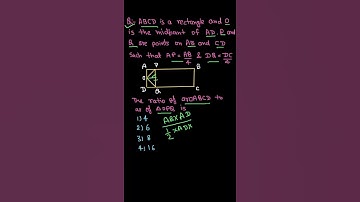 Q. ABCD is a rectangle and O
is the midpoint of AD. P and
Q are points on AB and CD
such that AP = AB/4 & DQ = DC/4
A P B
O
D Q C
The ratio of ABCD to
as of ΔOPQ is
1) 4
2) 6
3) 8
4) 16
AB×AD
1/2 × AD×